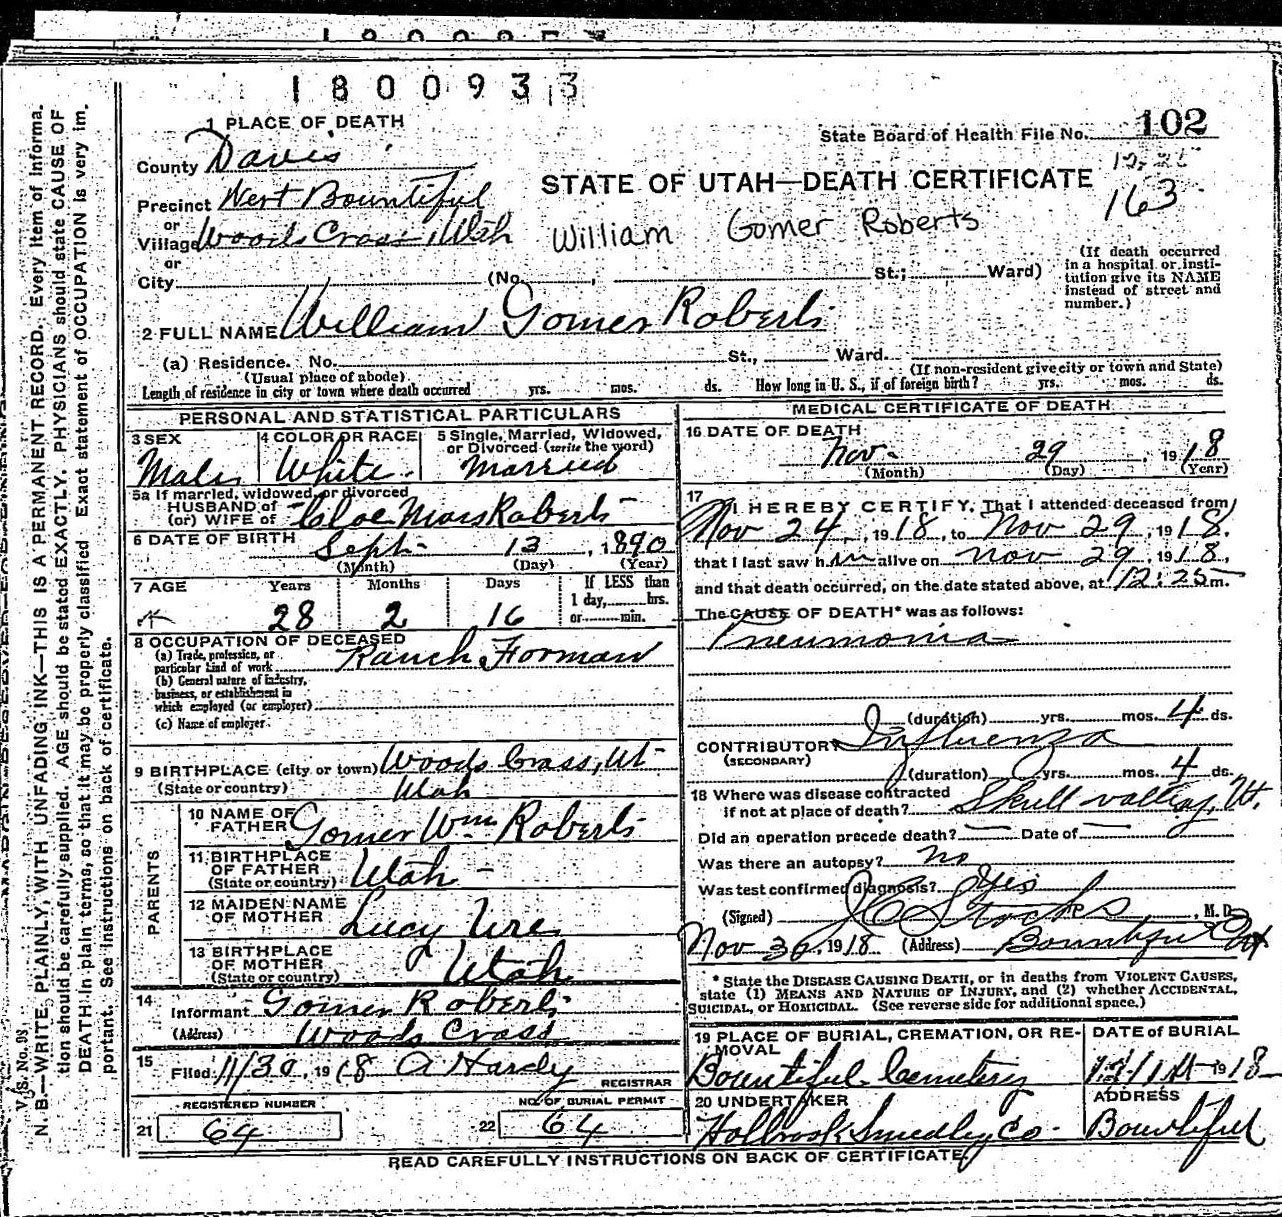 1800933
1 PLACE OF DEATH
State Board of Health File No. 102
County Davis
163
STATE OF UTAH—DEATH CERTIFICATE
Precinct West Bountiful
or
Village Woods Cross, Utah
William Gomer Roberts
or
City (No. , St.; Ward)
(If death occurred
in a hospital or insti-
tution give its NAME
instead of street and
number.)
2 FULL NAME William Gomer Roberts
(a) Residence. No. St., Ward.
(Usual place of abode) (If non-resident give city or town and State)
Length of residence in city or town where death occurred yrs. mos. ds. How long in U. S., if of foreign birth? yrs. mos. ds.
PERSONAL AND STATISTICAL PARTICULARS
3 SEX
Male
4 COLOR OR RACE
White
5 Single, Married, Widowed,
or Divorced (write the word)
Married
5a If married, widowed, or divorced
HUSBAND of
(or) WIFE of Cloe Moss Roberts
6 DATE OF BIRTH Sept. 13, 1890
(Month) (Day) (Year)
7 AGE Years Months Days If LESS than
1 day, hrs.
28 2 16 or min.
8 OCCUPATION OF DECEASED
(a) Trade, profession, or
particular kind of work Ranch Forman
(b) General nature of industry,
business, or establishment in
which employed (or employer)
(c) Name of employer
9 BIRTHPLACE (city or town) Woods Cross, Ut
(State or country) Utah
PARENTS
10 NAME OF
FATHER Gomer Wm Roberts
11 BIRTHPLACE
OF FATHER
(State or country) Utah
12 MAIDEN NAME
OF MOTHER Lucy Ure
13 BIRTHPLACE
OF MOTHER
(State or country) Utah
14
Informant Gomer Roberts
(Address) Woods Cross
15
Filed 11/30, 1918 A Hardy
REGISTRAR
REGISTERED NUMBER
21 64
NO. OF BURIAL PERMIT
22 64
MEDICAL CERTIFICATE OF DEATH
16 DATE OF DEATH
Nov. 29, 1918
(Month) (Day) (Year)
17
I HEREBY CERTIFY, That I attended deceased from
Nov 24, 1918, to Nov 29, 1918,
that I last saw him alive on Nov 29, 1918,
and that death occurred, on the date stated above, at 12:25 m.
The CAUSE OF DEATH* was as follows:
Pneumonia
(duration) yrs. mos. 4 ds.
CONTRIBUTORY Influenza
(SECONDARY)
(duration) yrs. mos. 4 ds.
18 Where was disease contracted
if not at place of death? Skull valley, Ut.
Did an operation precede death? — Date of —
Was there an autopsy? no
Was test confirmed diagnosis? Yes
(Signed) J C Stocks, M. D.
Nov 30, 1918 (Address) Bountiful Ut
* State the DISEASE CAUSING DEATH, or in deaths from VIOLENT CAUSES,
state (1) MEANS AND NATURE OF INJURY, and (2) whether ACCIDENTAL,
SUICIDAL, or HOMICIDAL. (See reverse side for additional space.)
19 PLACE OF BURIAL, CREMATION, OR RE-
MOVAL
Bountiful Cemetery
DATE OF BURIAL
1918
20 UNDERTAKER
Holbrook Smedley Co.
ADDRESS
Bountiful
READ CAREFULLY INSTRUCTIONS ON BACK OF CERTIFICATE
V. S. No. 93
N. B.—WRITE PLAINLY, WITH UNFADING INK—THIS IS A PERMANENT RECORD. Every item of informa-
tion should be carefully supplied. AGE should be stated EXACTLY. PHYSICIANS should state CAUSE OF
DEATH in plain terms, so that it may be properly classified. Exact statement of OCCUPATION is very im-
portant. See instructions on back of certificate.